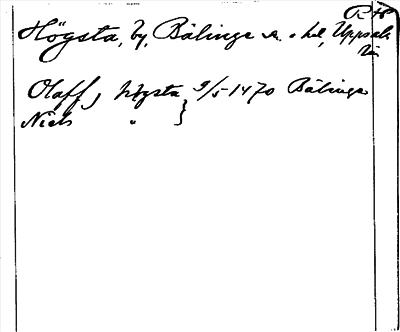 Högsta, by, Bälinge sn. o. hd, Uppsala
län
Olaff, Högsta } 9/5-1470 Bälinge
Niels  "